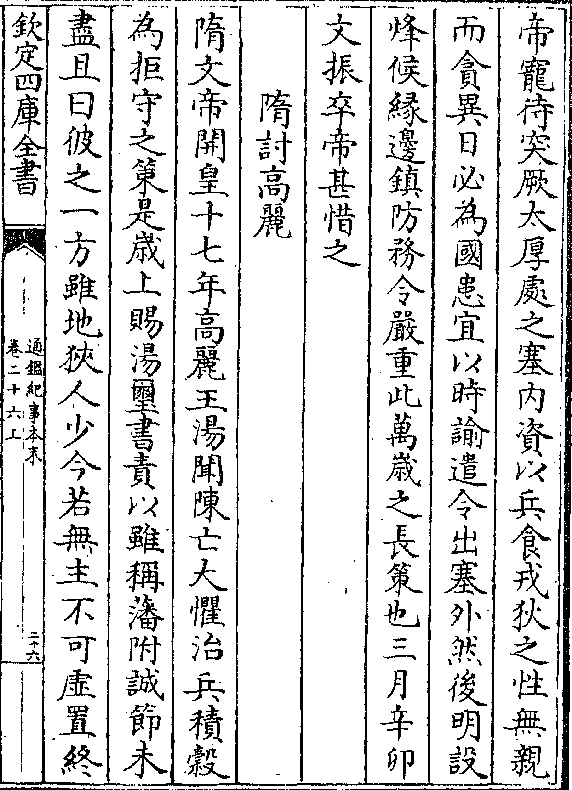 帝寵待突厥太厚處之塞内資以兵食戎狄之性無親
而貪異日必為國患宜以時諭遣令出塞外然後明設
烽候緣邊鎮防務令嚴重此萬歲之長策也三月辛卯
文振卒帝甚惜之
隋討高麗
隋文帝開皇十七年高麗王湯聞陳亡大懼治兵積穀
為拒守之策是歲上賜湯璽書責以雖稱藩附誠節未
盡且曰彼之一方雖地狹人少今若無主不可虛置終
欽定四庫全書
通鑑紀事本末
卷二十六上
二十六